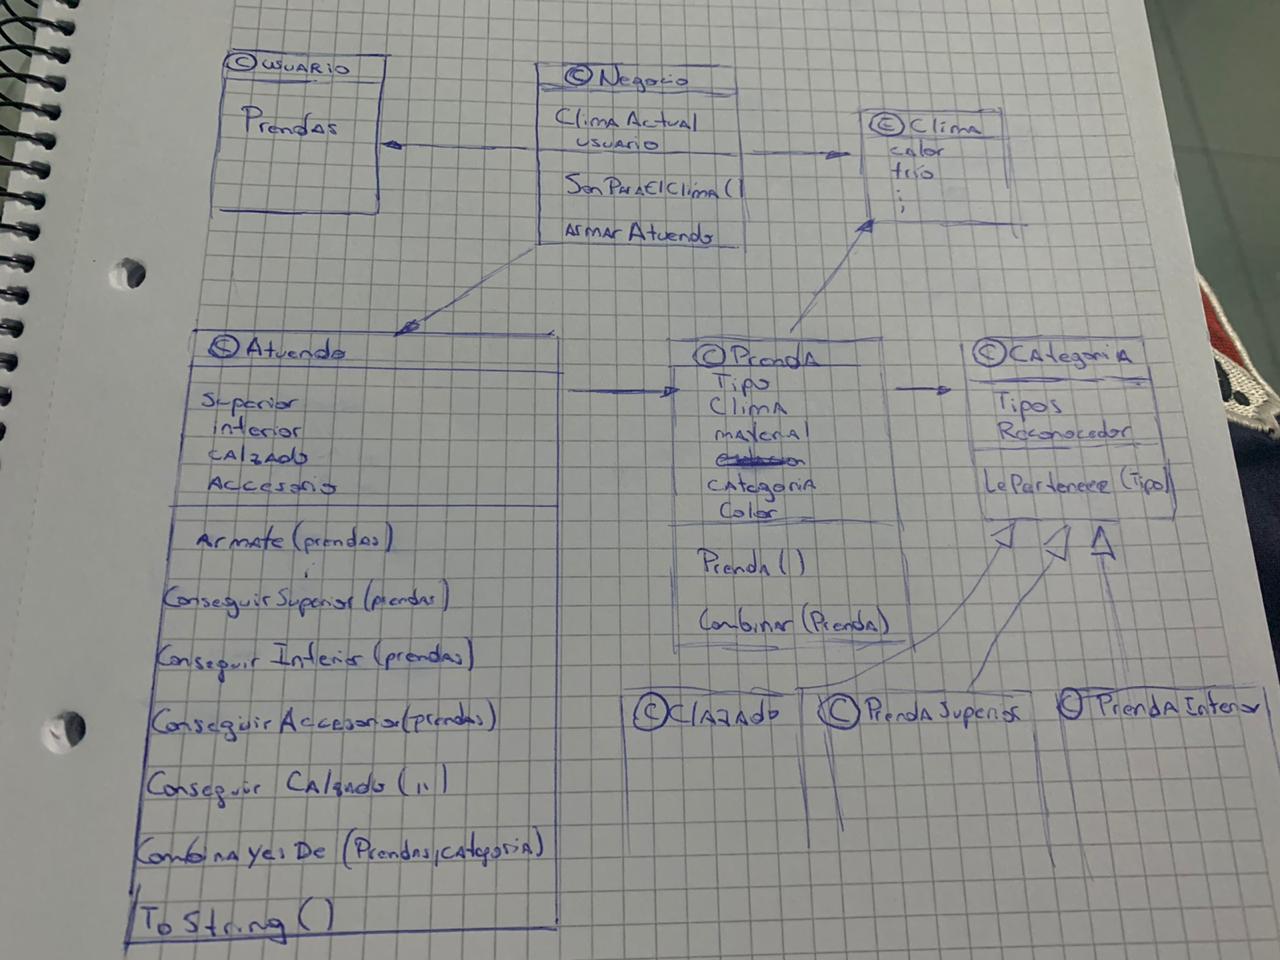 © USUARIO
Prendas
© Negocio
Clima Actual
usuario
SonParaElClima ()
Armar Atuendo
Ⓔ Clima
calor
frio
:
;
© Atuendo
Superior
inferior
CALZADO
Accesorio
Armate (prendas)
Conseguir Superior (prendas)
Conseguir Inferior (prendas)
Conseguir Accesorio (prendas)
Conseguir Calzado (,,)
Combina y es De (Prendas, CAtegoriA)
To String ()
© PrendA
Tipo
ClimA
materiAl
CAtegoriA
Color
Prenda ()
Combinar (Prenda)
© CAtegoriA
Tipos
Reconocedor
LePertenece (Tipo)
© ClAzAdo
© PrendA Superior
© PrendA Inferior